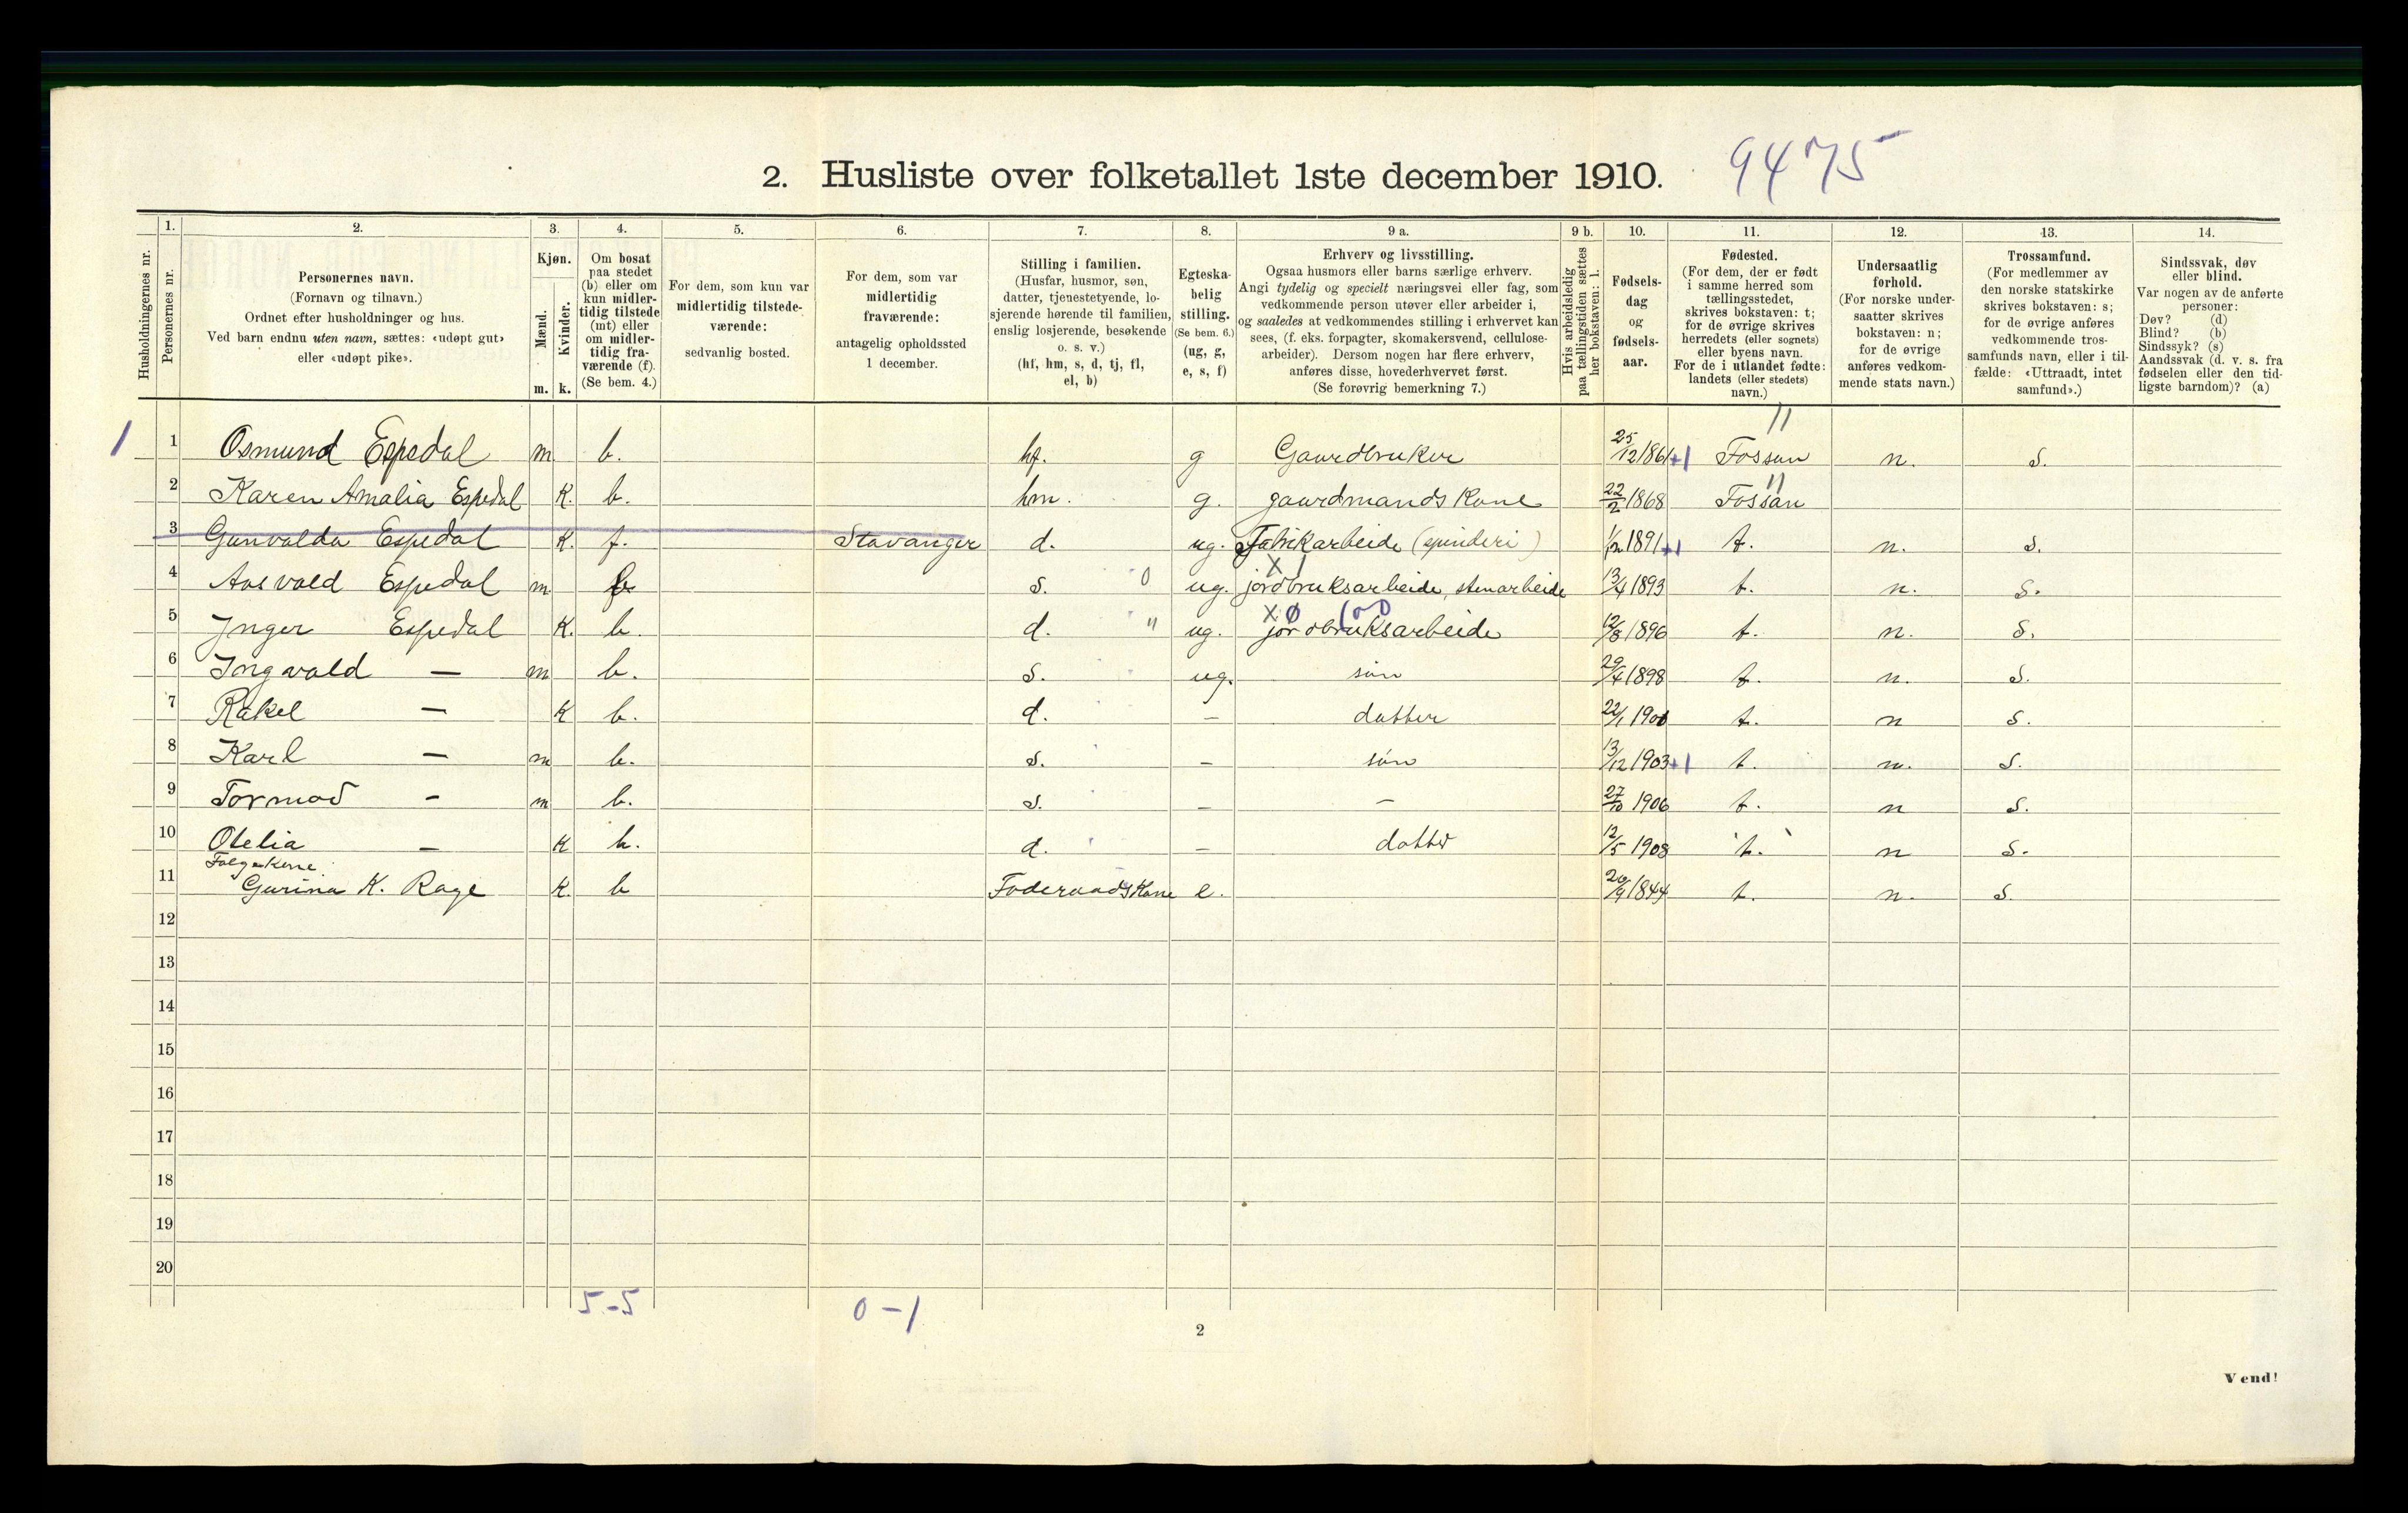 2. Husliste over folketallet 1ste december 1910.
9475
Husholdningernes nr.
1.
Personernes nr.
2.
Personernes navn.
(Fornavn og tilnavn.)
Ordnet efter husholdninger og hus.
Ved barn endnu uten navn, sættes: «udøpt gut»
eller «udøpt pike».
3.
Kjøn.
Mænd.
Kvinder.
m. k.
4.
Om bosat
paa stedet
(b) eller om
kun midler-
tidig tilstede
(mt) eller
om midler-
tidig fra-
værende (f).
(Se bem. 4.)
5.
For dem, som kun var
midlertidig tilstede-
værende:
sedvanlig bosted.
6.
For dem, som var
midlertidig
fraværende:
antagelig opholdssted
1 december.
7.
Stilling i familien.
(Husfar, husmor, søn,
datter, tjenestetyende, lo-
sjerende hørende til familien,
enslig losjerende, besøkende
o. s. v.)
(hf, hm, s, d, tj, fl,
el, b)
8.
Egteska-
belig
stilling.
(Se bem. 6.)
(ug, g,
e, s, f)
9 a.
Erhverv og livsstilling.
Ogsaa husmors eller barns særlige erhverv.
Angi tydelig og specielt næringsvei eller fag, som
vedkommende person utøver eller arbeider i,
og saaledes at vedkommendes stilling i erhvervet kan
sees, (f. eks. forpagter, skomakersvend, cellulose-
arbeider). Dersom nogen har flere erhverv,
anføres disse, hovederhvervet først.
(Se forøvrig bemerkning 7.)
9 b.
Hvis arbeidsledig
paa tællingstiden sættes
her bokstaven: l.
10.
Fødsels-
dag
og
fødsels-
aar.
11.
Fødested.
(For dem, der er født
i samme herred som
tællingsstedet,
skrives bokstaven: t;
for de øvrige skrives
herredets (eller sognets)
eller byens navn.
For de i utlandet fødte:
landets (eller stedets)
navn.)
12.
Undersaatlig
forhold.
(For norske under-
saatter skrives
bokstaven: n;
for de øvrige
anføres vedkom-
mende stats navn.)
13.
Trossamfund.
(For medlemmer av
den norske statskirke
skrives bokstaven: s;
for de øvrige anføres
vedkommende tros-
samfunds navn, eller i til-
fælde: «Uttraadt, intet
samfund».)
14.
Sindssvak, døv
eller blind.
Var nogen av de anførte
personer:
Døv? (d)
Blind? (b)
Sindssyk? (s)
Aandssvak (d. v. s. fra
fødselen eller den tid-
ligste barndom)? (a)
1 1 Osmund Espedal m. b. hf. g Gaardbruker 25/12 1861 +1 Fossan n. s.
2 Karen Amalia Espedal K. b. hm. g. gaardmands Kone 22/2 1868 Fossan
3 Gunvalda Espedal K. f. Stavanger d. ug. Fabrikarbeide (spinderi) 1/12 1891 +1 t. n. s.
4 Aasvald Espedal m b. s. 0 ug. jordbruksarbeide, stenarbeide 13/4 1893 t. n. s.
5 Inger Espedal K. b. d. " ug. jordbruksarbeide 12/8 1896 t. n. s.
6 Ingvald — m b. s. ug. søn 29/4 1898 t. n. s.
7 Rakel — K b. d. — datter 22/1 1901 t. n s.
8 Karl — m b. s. — søn 13/12 1903 +1 t. n. s.
9 Tormod - m b. s. — — 27/10 1906 t. n s.
10 Otelia — K b. d. — datter 12/5 1908 t. n s.
11 Gurina K. Rage K. b Foderaadskone e. 20/9 1844 t. n. s.
12
13
14
15
16
17
18
19
20
5-5
0-1
2
Vend!